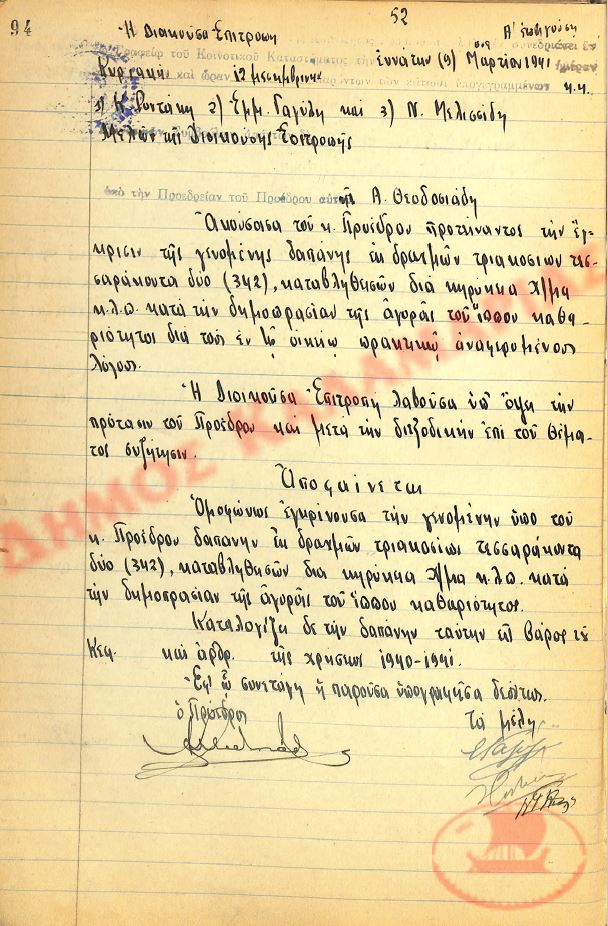 94
52
Ἡ Διοικοῦσα Ἐπιτροπὴ
συνεδριάσει
Γραφείῳ τοῦ Κοινοτικοῦ Καταστήματος τὴν ἐννάτην (9) Μαρτίου 1941
Κυριακὴ καὶ ὥραν 12 μεσημβρινὴ
1) Κ. 2) Ἐμμ. Γαγύλη καὶ 3) Ν. Μελισσίδη
Μελῶν τῆς Διοικούσης Ἐπιτροπῆς
ὑπὸ τὴν Προεδρείαν τοῦ Προέδρου αὐτῆς Α. Θεοδοσιάδη
Ἀκούσασα τοῦ κ. Προέδρου προτείναντος τὴν ἔγ-
κρισιν τῆς γενομένης δαπάνης ἐκ δραχμῶν τριακοσίων τεσ-
σαράκοντα δύο (342), καταβληθησῶν διὰ κηρύκια Χ/μα
κ.λ.π. κατὰ τὴν δημοπρασίαν τῆς ἀγορᾶς τοῦ ἵππου καθα-
ριότητος διὰ τοὺς ἐν τῷ οἰκείῳ πρακτικῷ ἀναφερομένους
λόγους.
Ἡ Διοικοῦσα Ἐπιτροπὴ λαβοῦσα ὑπ' ὄψει τὴν
πρότασιν τοῦ Προέδρου καὶ μετὰ τὴν διεξοδικὴν ἐπὶ τοῦ θέμα-
τος συζήτησιν.
Ἀποφαίνεται
Ὁμοφώνως ἐγκρίνουσα τὴν γενομένην ὑπὸ τοῦ
κ. Προέδρου δαπάνην ἐκ δραχμῶν τριακοσίων τεσσαράκοντα
δύο (342), καταβληθησῶν διὰ κηρύκια Χ/μα κ.λ.π. κατὰ
τὴν δημοπρασίαν τῆς ἀγορᾶς τοῦ ἵππου καθαριότητος.
Καταλογίζει δὲ τὴν δαπάνην ταύτην εἰς βάρος τοῦ
Κεφ. καὶ ἄρθρ. τῆς χρήσεως 1940-1941.
Ἐφ' ᾧ συνετάγη ἡ παροῦσα ὑπογραφεῖσα δεόντως.
ὁ Πρόεδρος
Τὰ μέλη
ΔΗΜΟΣ ΚΑΛΑΜΑΡΙΑΣ